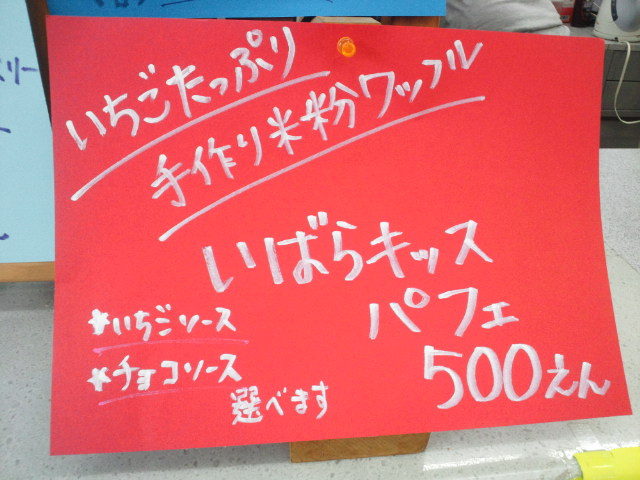 いちごたっぷり
手作り米粉ワッフル
いばらキッス
パフェ
500えん
*いちごソース
*チョコソース
選べます